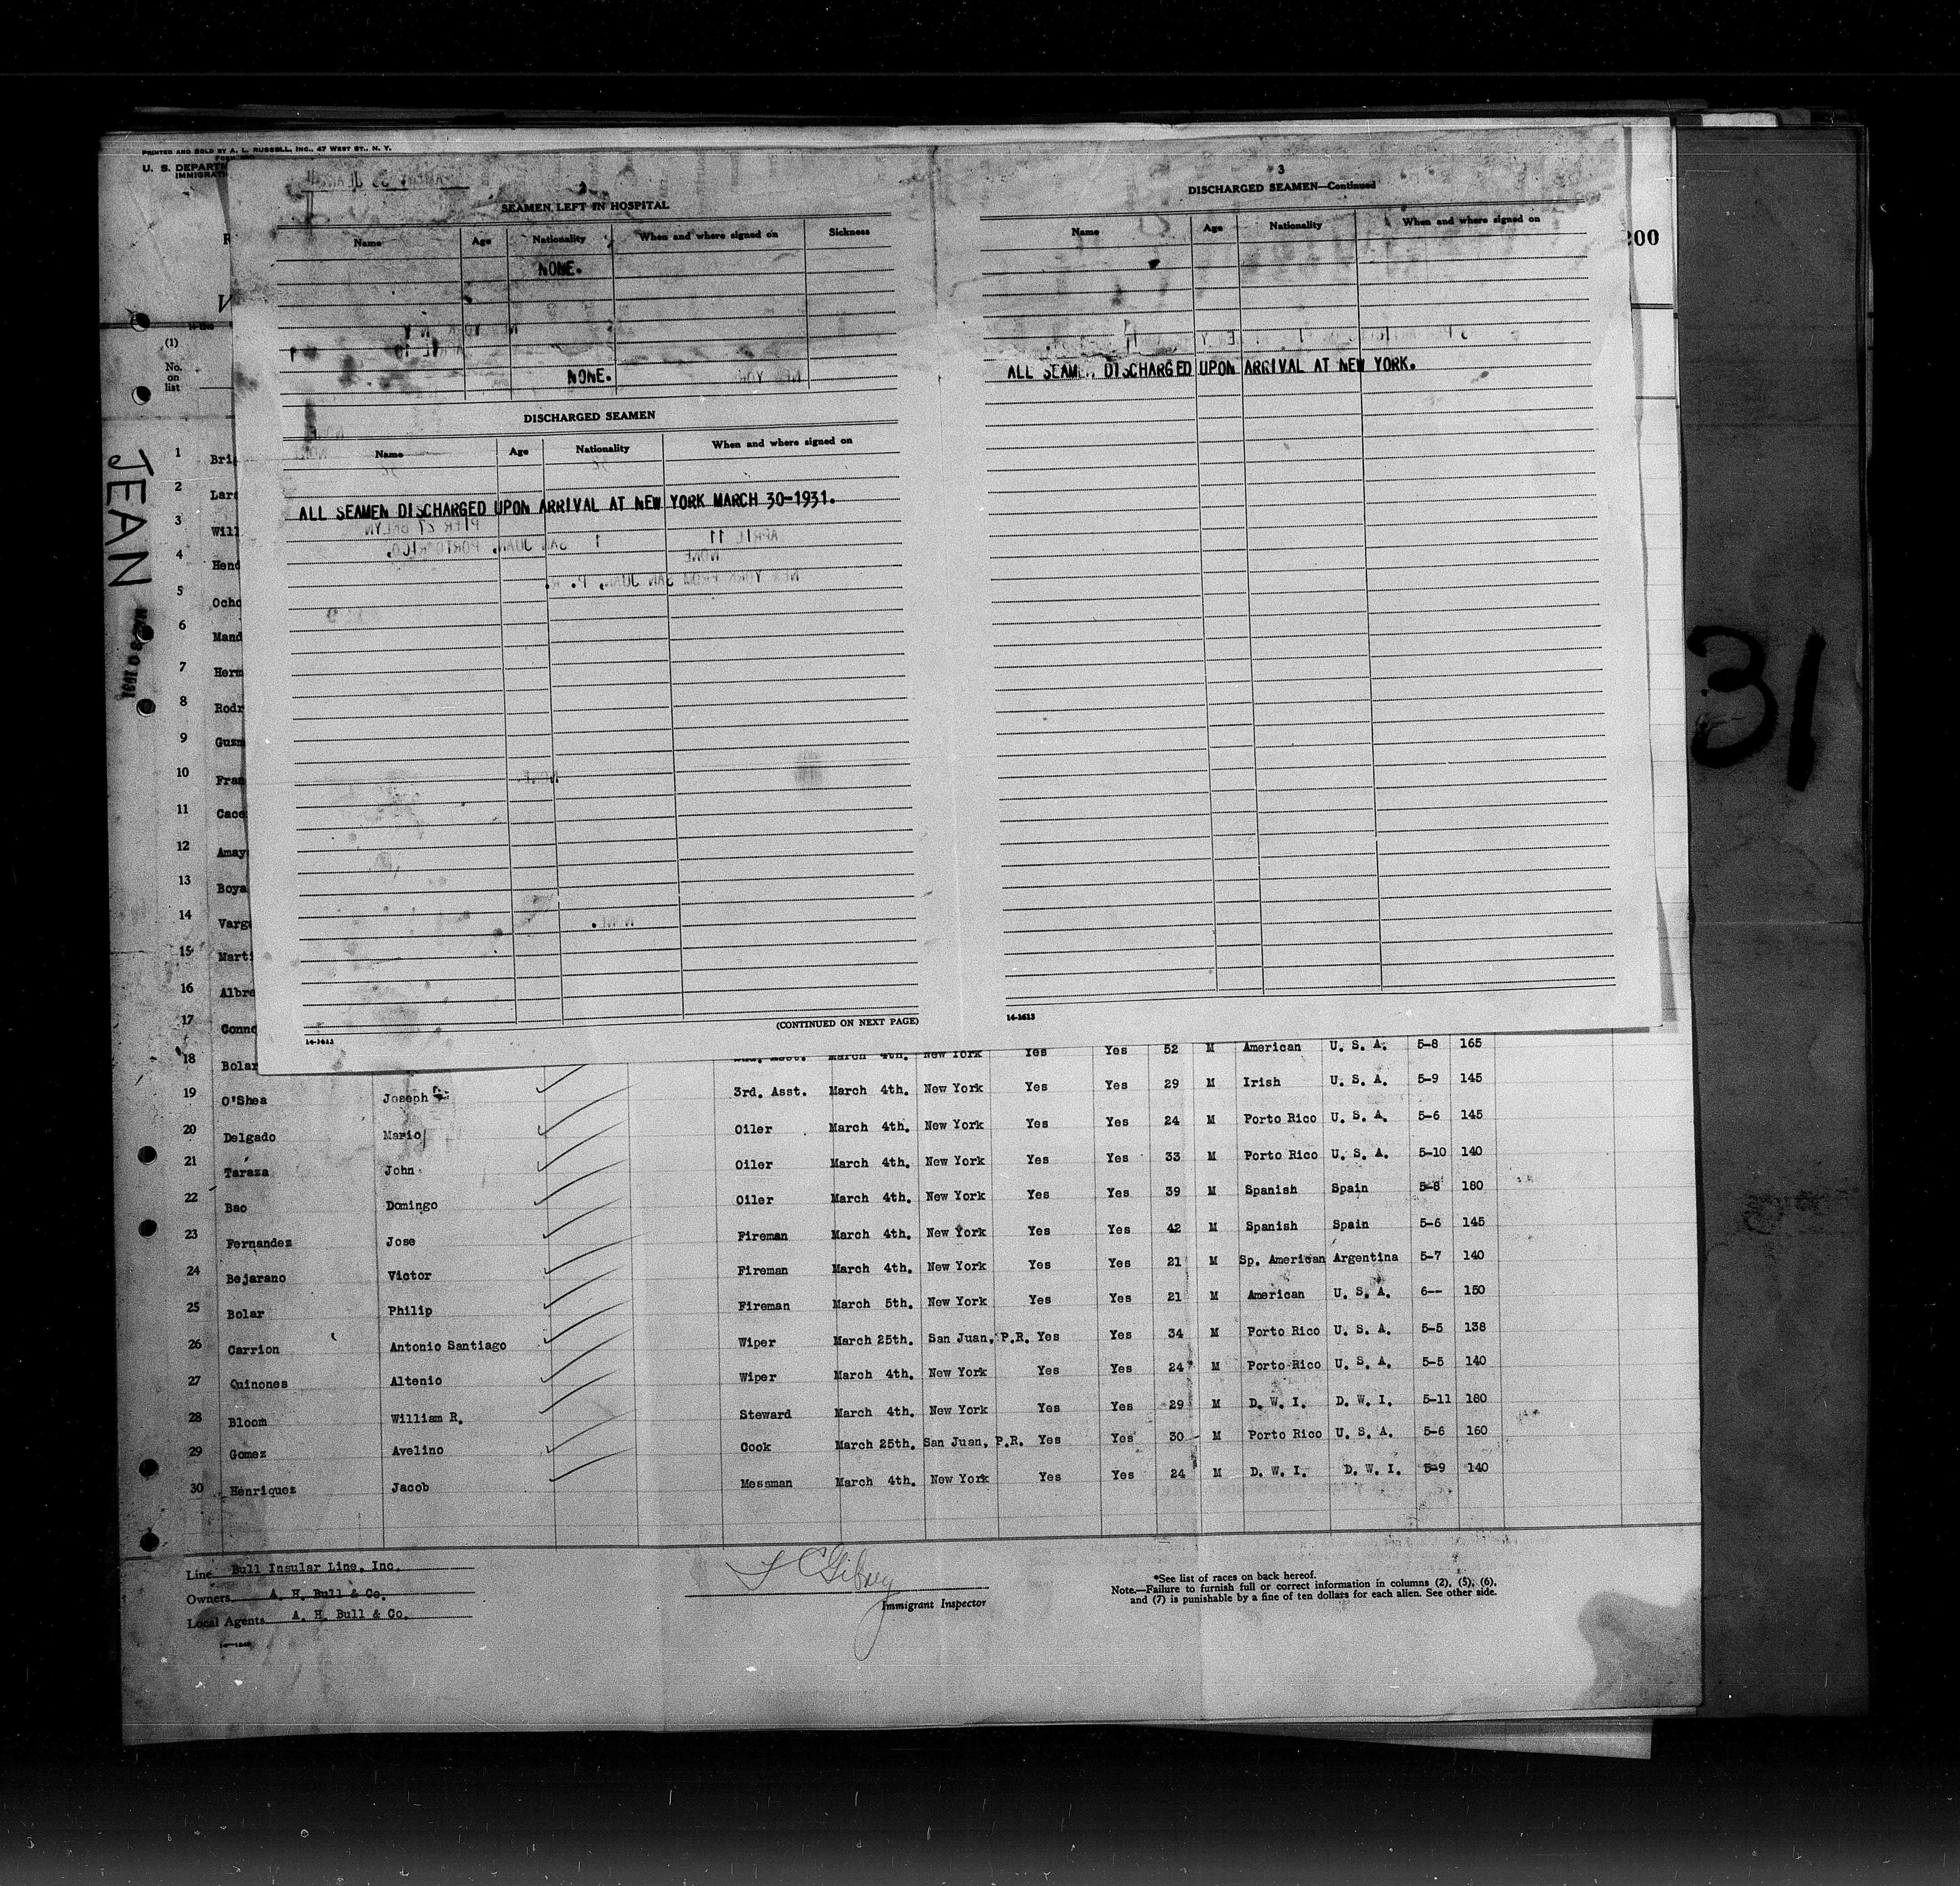 PRINTED AND SOLD BY A. L. RUSSELL, INC., 47 WEST ST., N. Y.
U. S. DEPARTM
IMMIGRAT
2
SEAMEN LEFT IN HOSPITAL
Name Age Nationality When and where signed on Sickness
NONE.
NONE.
DISCHARGED SEAMEN
Name Age Nationality When and where signed on
ALL SEAMEN DISCHARGED UPON ARRIVAL AT NEW YORK MARCH 30-1931.
(CONTINUED ON NEXT PAGE)
14-1613
3
DISCHARGED SEAMEN—Continued
Name Age Nationality When and where signed on
ALL SEAMEN DISCHARGED UPON ARRIVAL AT NEW YORK.
14-1613
200
V
(1)
No.
on
list
JEAN
31
1 Bri
2 Lars
3 Will
4 Hend
5 Ocho
6 Mand
7 Herm
8 Rodr
9 Guzm
10 Fran
11 Cace
12 Amay
13 Boya
14 Varg
15 Marti
16 Albre
17 Conno
18 Bolar 2nd. Asst. March 4th. New York Yes Yes 52 M American U. S. A. 5-8 165
19 O'Shea Joseph 3rd. Asst. March 4th. New York Yes Yes 29 M Irish U. S. A. 5-9 145
20 Delgado Mario Oiler March 4th. New York Yes Yes 24 M Porto Rico U. S. A. 5-6 145
21 Taraza John Oiler March 4th. New York Yes Yes 33 M Porto Rico U. S. A. 5-10 140
22 Bao Domingo Oiler March 4th. New York Yes Yes 39 M Spanish Spain 5-8 180
23 Fernandez Jose Fireman March 4th. New York Yes Yes 42 M Spanish Spain 5-6 145
24 Bejarano Victor Fireman March 4th. New York Yes Yes 21 M Sp. American Argentina 5-7 140
25 Bolar Philip Fireman March 5th. New York Yes Yes 21 M American U. S. A. 6-- 150
26 Carrion Antonio Santiago Wiper March 25th. San Juan, P.R. Yes Yes 34 M Porto Rico U. S. A. 5-5 138
27 Quinones Altenio Wiper March 4th. New York Yes Yes 24 M Porto Rico U. S. A. 5-5 140
28 Bloom William R. Steward March 4th. New York Yes Yes 29 M D. W. I. D. W. I. 5-11 180
29 Gomez Avelino Cook March 25th. San Juan, P.R. Yes Yes 30 M Porto Rico U. S. A. 5-6 160
30 Henriquez Jacob Messman March 4th. New York Yes Yes 24 M D. W. I. D. W. I. 5-9 140
Line Bull Insular Line, Inc.
Owners A. H. Bull & Co.
Local Agents A. H. Bull & Co.
Immigrant Inspector
*See list of races on back hereof.
Note.—Failure to furnish full or correct information in columns (2), (5), (6),
and (7) is punishable by a fine of ten dollars for each alien. See other side.